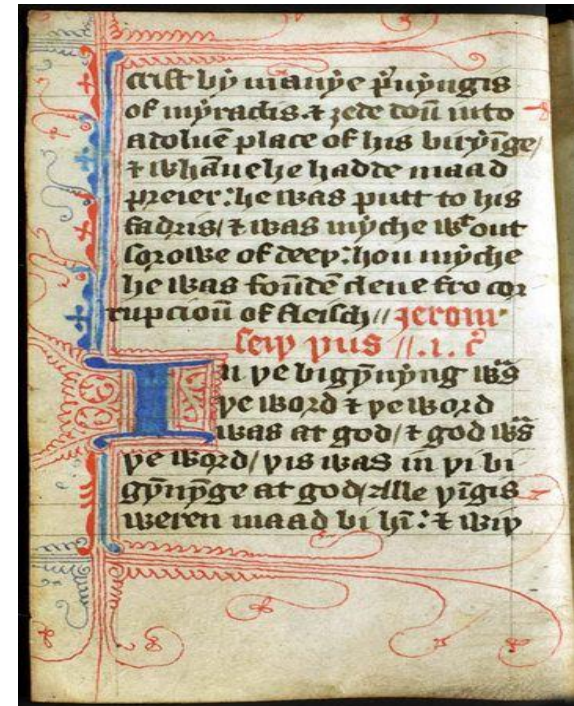 crist bẏ manẏe p̉uẏngis
of mẏraclis. ⁊ ȝede doū into
a doluē place of his biriẏge/
⁊ whāne he hadde maad
preier: he was putt to his
fadris/ ⁊ was mẏche wᵗ out
sorowe of deeþ: hou mẏche
he was foūdē clene fro cor
rupcioū of fleisch// Jerom
seiþ þus //.1. c̊
In þe bigẏnẏng wᵃs
þe word ⁊ þe word
was at god/ ⁊ god wᵃs
þe word/ þis was in þi bi
gẏnẏge at god/ Alle þīgis
weren maad bi hī: ⁊ wiþ